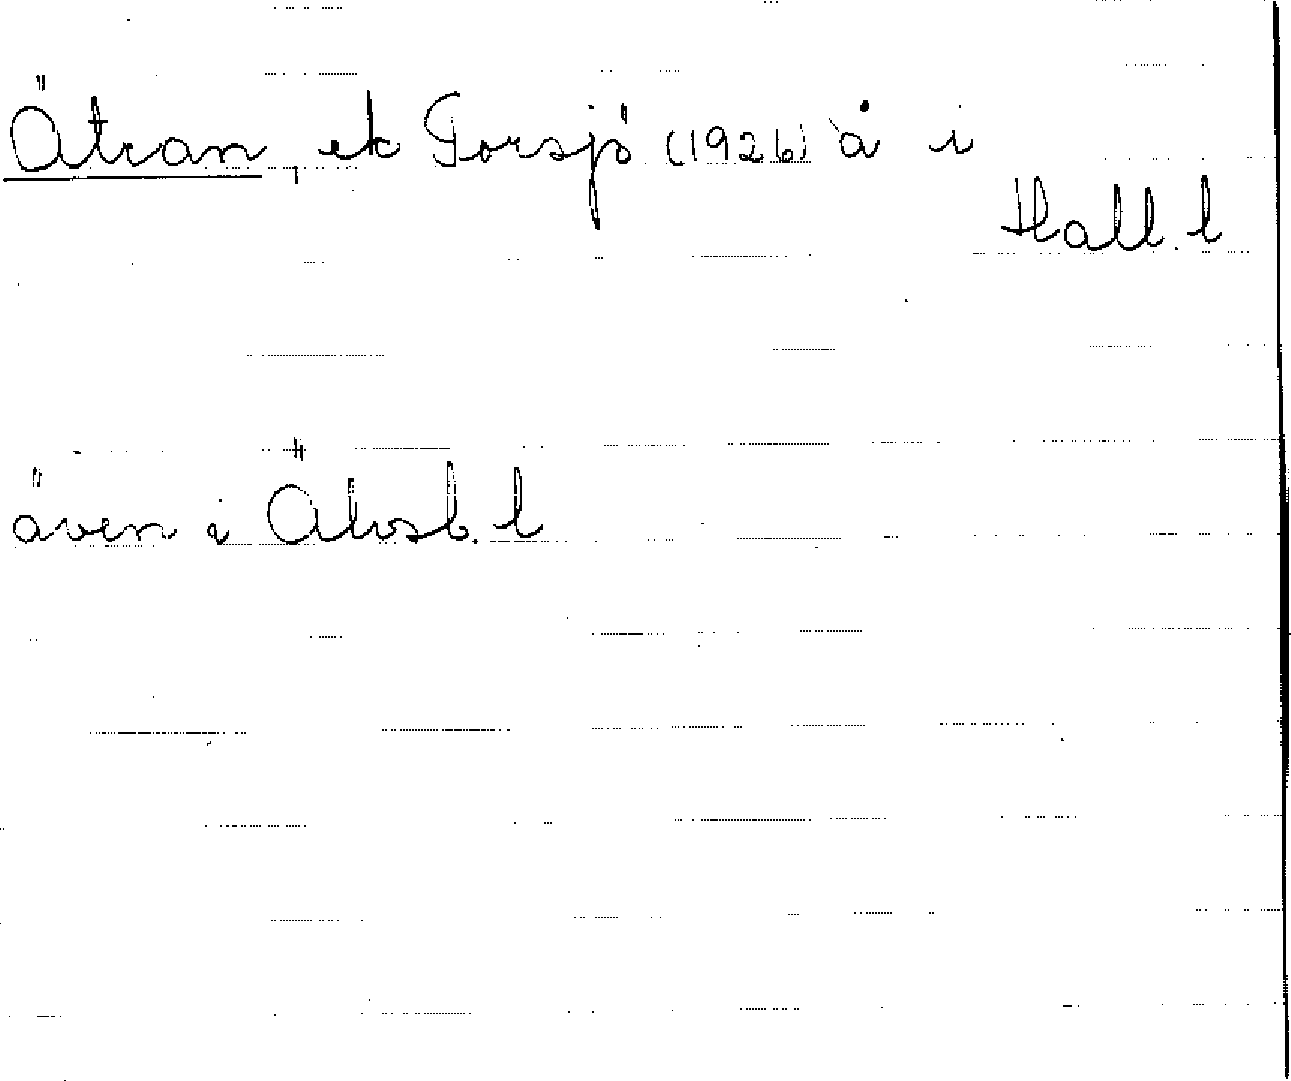 Ätran, ek Torsjö (1926) å i
Hall. l
även i Älvsb. l